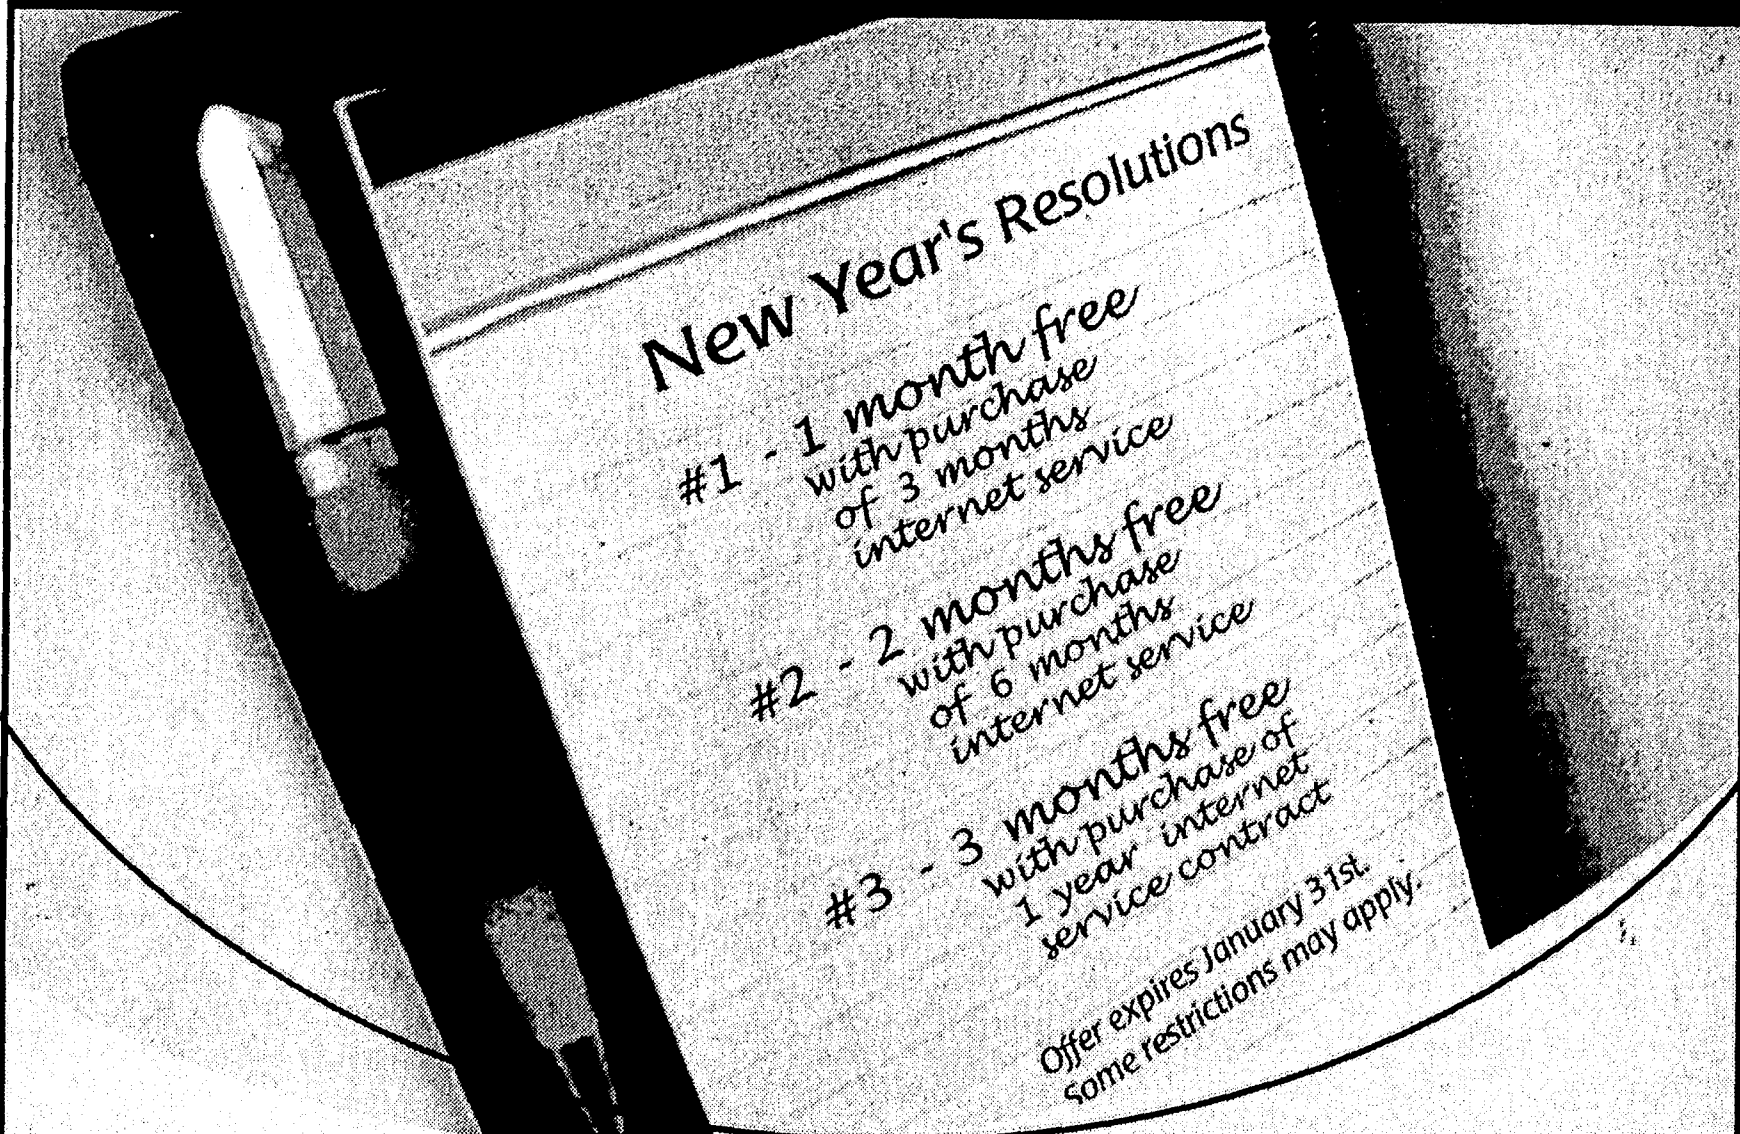 New Year's Resolutions
#1 - 1 month free
with purchase
of 3 months
internet service
#2 - 2 months free
with purchase
of 6 months
internet service
#3 - 3 months free
with purchase of
1 year internet
service contract
Offer expires January 31st.
Some restrictions may apply.